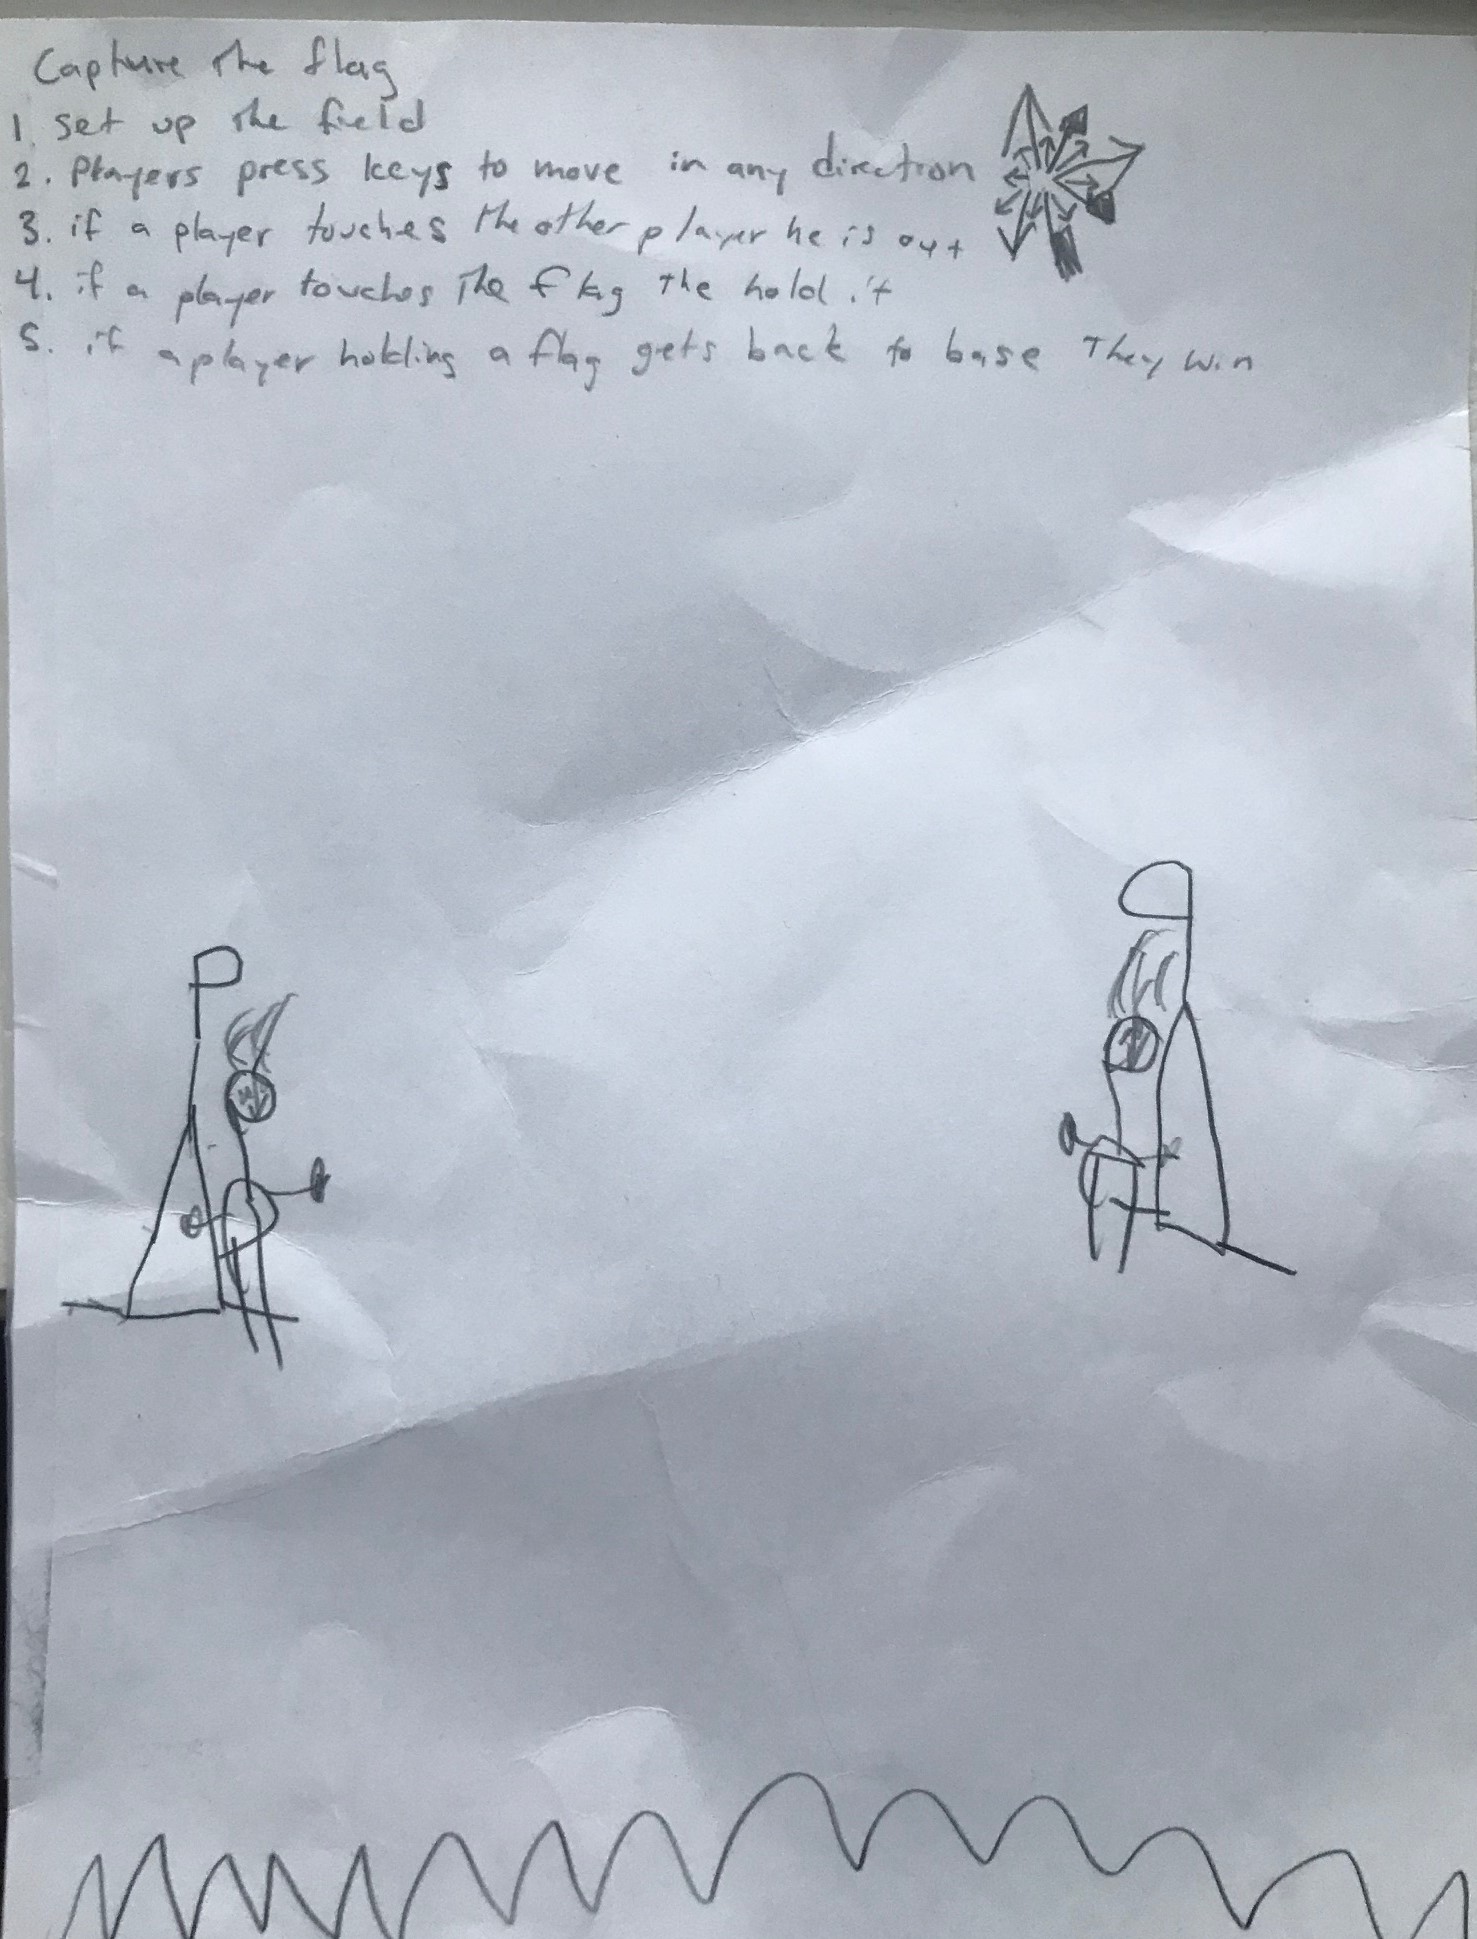 Capture the flag
1. set up the field
2. Players press keys to move in any direction
3. if a player touches the other player he is out
4. if a player touches the flag the hold it
5. if a player holding a flag gets back to base they win